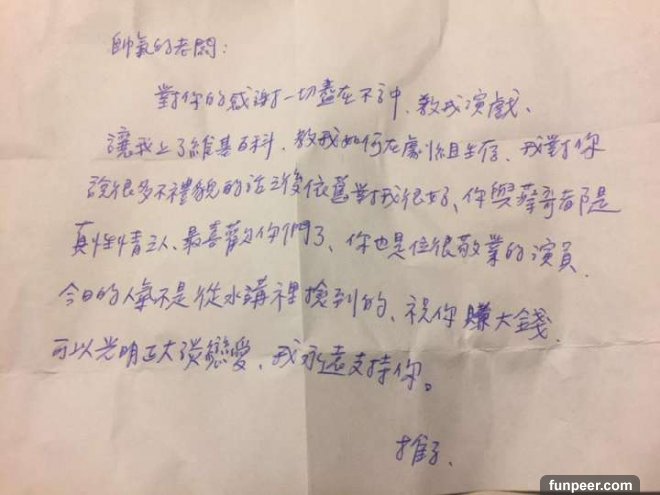 帥氣的老闆:
對你的感謝一切盡在不言中、教我演戲、
讓我上了維基百科、教我如何在劇組生存、我對你
說很多不禮貌的話之後依舊對我很好、你與蔡哥都是
真性情之人、最喜歡你們了、你也是位很敬業的演員
今日的人氣不是從水溝裡撿到的、祝你賺大錢
可以光明正大談戀愛、我永遠支持你。
funpeer.com